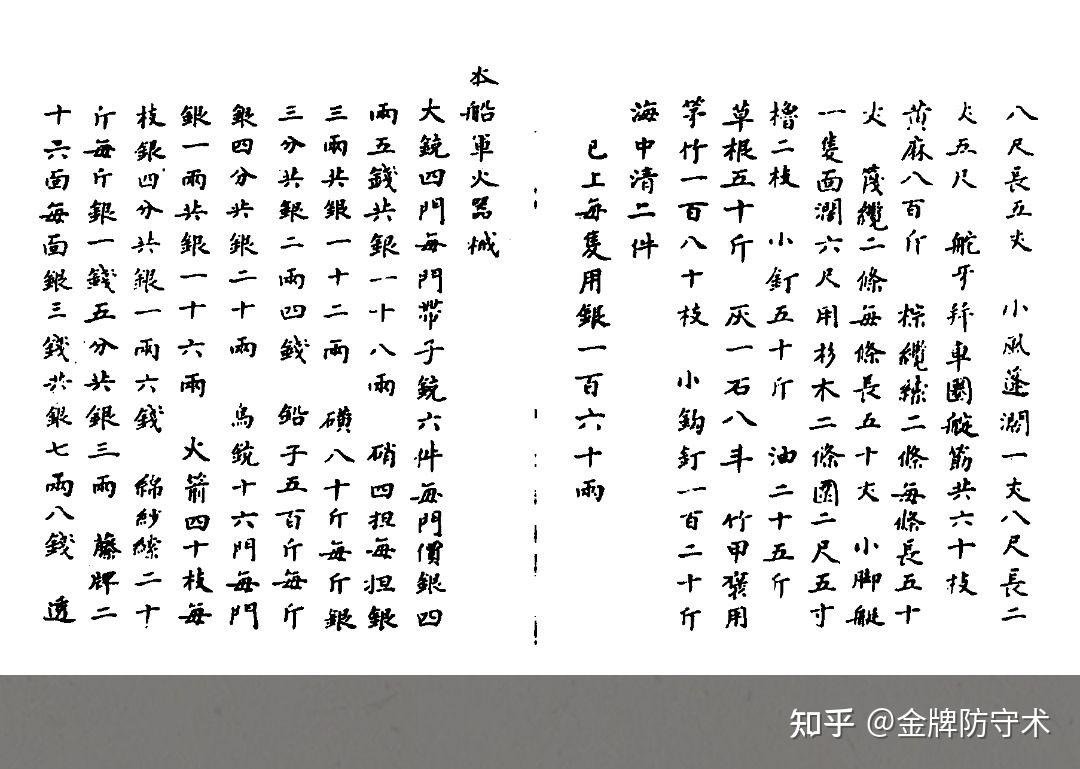 八尺長五丈　小風篷濶一丈八尺長二
丈五尺　舵牙拜車圈艇筋共六十枝
黃麻八百斤　棕纜繚二條每條長五十
丈　篾纜二條每條長五十丈　小脚艇
一隻面濶六尺用杉木二條圍二尺五寸
櫓二枝　小釘五十斤　油二十五斤
草根五十斤　灰一石八斗　竹甲褒用
茅竹一百八十枝　小鈎釘一百二十斤
海中清二件
已上每隻用銀一百六十兩
本船軍火器械
大銃四門每門帶子銃六件每門價銀四
兩五錢共銀一十八兩　硝四担每担銀
三兩共銀一十二兩　磺八十斤每斤銀
三分共銀二兩四錢　鉛子五百斤每斤
銀四分共銀二十兩　鳥銃十六門每門
銀一兩共銀一十六兩　火箭四十枝每
枝銀四分共銀一兩六錢　綿紗縧二十
斤每斤銀一錢五分共銀三兩　藤牌二
十六面每面銀三錢共銀七兩八錢　透
知乎 @金牌防守术